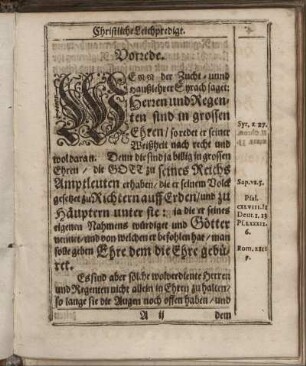 Christliche Leichpredigt.
Vorrede.
WEnn der Zucht- unnd
Haußlehrer Syrach saget:
Herren und Regen-
ten sind in grossen
Ehren / so redet er seiner
Weißheit nach recht und
wol daran. Denn die sind ja billig in grossen
Ehren / die GOTT zu seines Reichs
Amptleuten erhaben / die er seinem Volck
gesetzet zu Richtern auff Erden / und zu
Häuptern unter sie: ja die er seines
eigenen Nahmens würdiget und Götter
nennet / und von welchen er befohlen hat / man
solle geben Ehre dem die Ehre gebü-
ret.
Es sind aber solche wolverdiente Herren
und Regenten nicht allein in Ehren zu halten /
so lange sie die Augen noch offen haben / und
A ij
dem
Syr. x 27.
Sap. vi. 5.
Psal.
Deut. 1. 15
6.